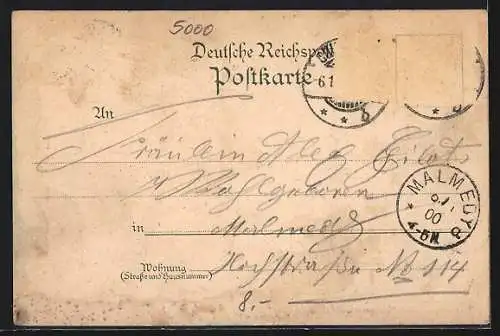 5000
Deutsche Reichspo
Postkarte
6.1
An
Fräulein
Wohlgeboren
in Malmedy
MALMEDY
6.1.
00
4-5N.
Wohnung
(Straße und Hausnummer)
Hochstraße No 114
8.-